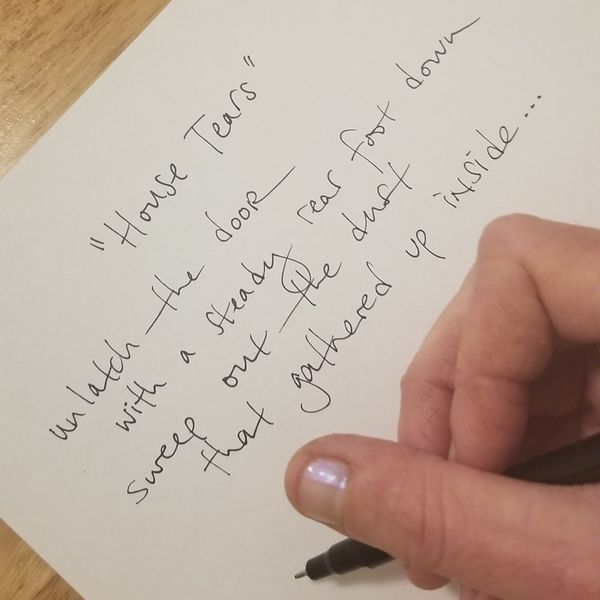 "House Tears"
unlatch the door
with a steady rear foot down
sweep out the dust
that gathered up inside...